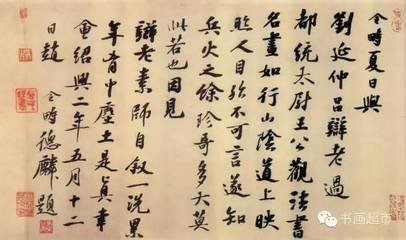 令畤夏日與
劉延仲呂辯老過
都統太尉王公觀法書
名畫如行山陰道上映
照人目殆不可言遂知
兵火之餘珍奇多大莫
此若也因見
辯老素師自叙一洗累
年胷中塵土是真幸
會紹興二年五月十二
日趙 令畤德麟題
书画超市